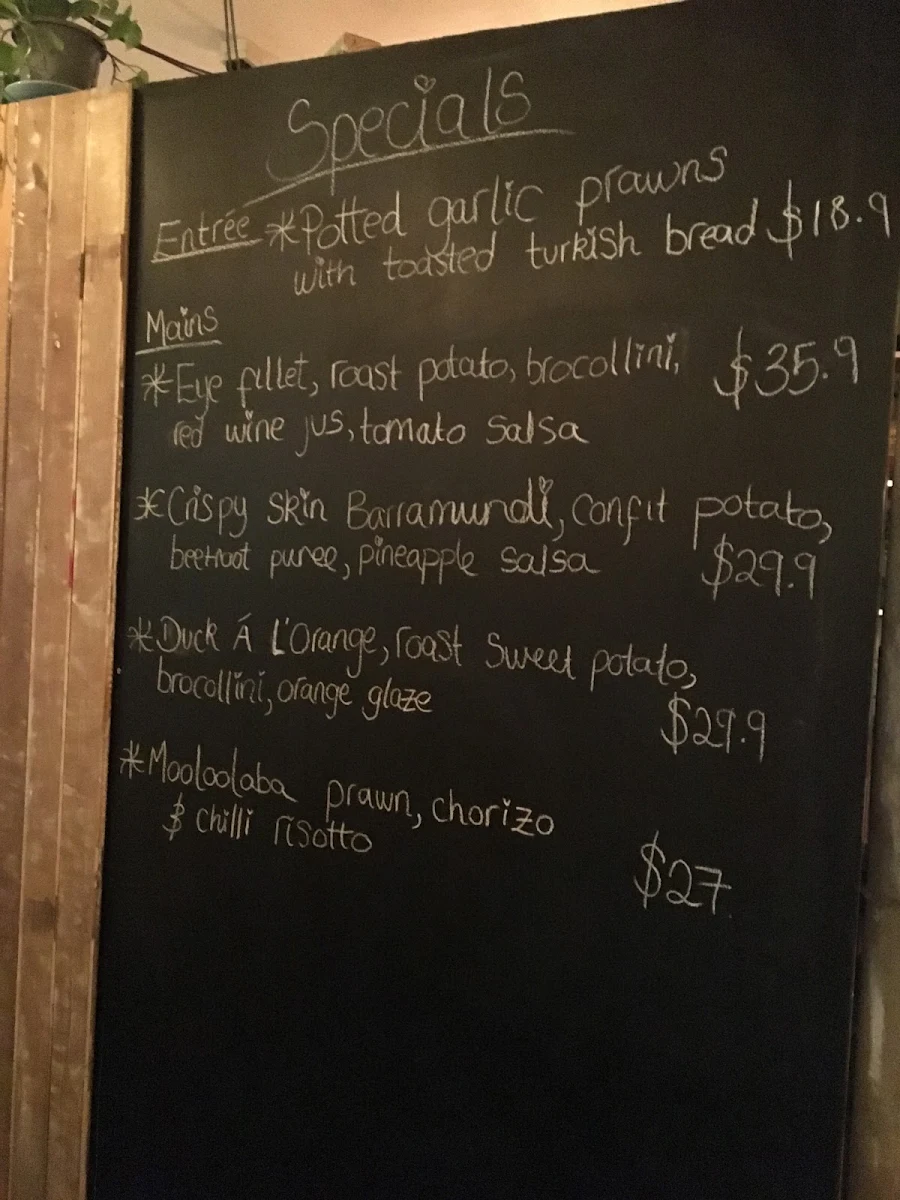 Specials
Entrée *Potted garlic prawns
with toasted turkish bread $18.9
Mains
*Eye fillet, roast potato, brocollini, $35.9
red wine jus, tomato salsa
*Crispy skin Barramundi, confit potato,
beetroot puree, pineapple salsa $29.9
*Duck Á L'Orange, roast sweet potato,
brocollini, orange glaze
$29.9
*Mooloolaba prawn, chorizo
& chilli risotto
$27